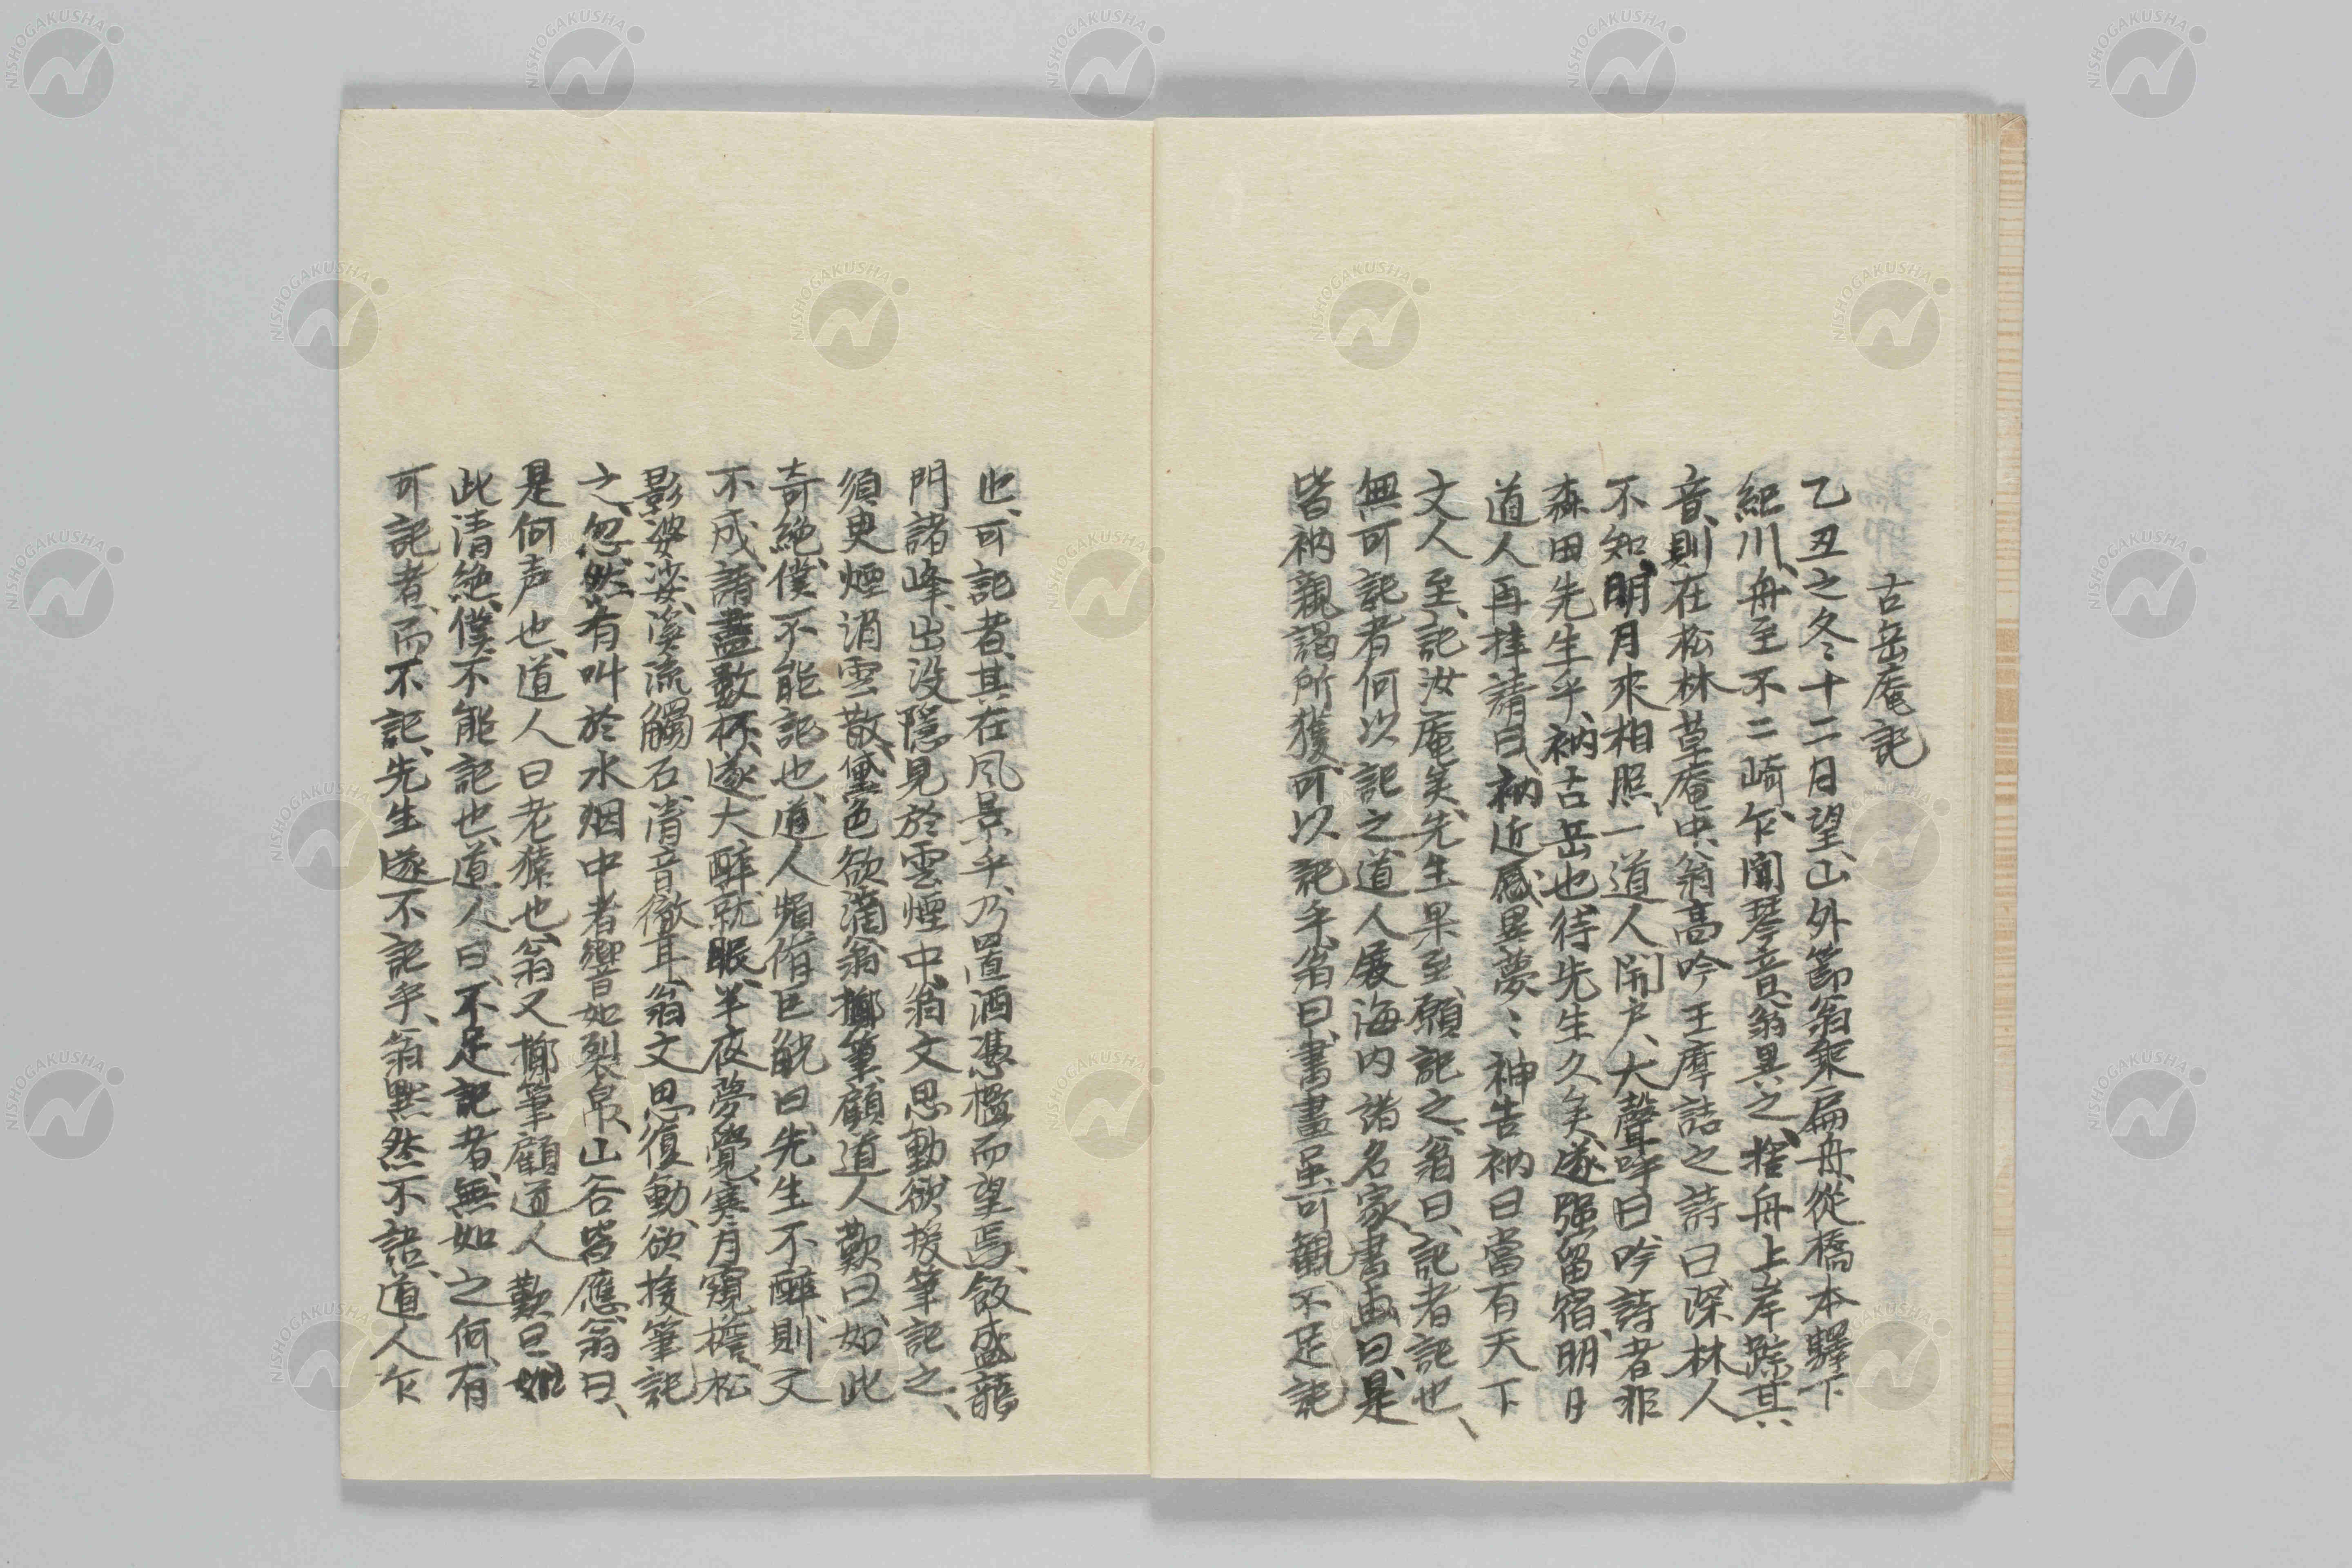 古岳庵記
乙丑之冬十二月望、山外節翁乘扁舟、從橋本驛下
紀川、舟至不二崎、乍聞琴音、翁異之、捨舟上岸、踪其
音、則在松林草庵中、翁高吟王摩詰之詩曰、深林人
不知、明月來相照、一道人開戸、大聲呼曰、吟詩者非
森田先生乎、衲古岳也、待先生久矣、遂强留宿、明日
道人再拜請曰、衲近感異夢、々神告衲曰當有天下
文人至、記汝庵矣、先生果至、願記之、翁曰、記者記也、
無可記者何以記之、道人展海内諸名家書画曰、是
皆衲親謁所獲、可以記乎、翁曰、書畫虽可観不足記
也、可記者、其在風景乎、乃置酒憑檻而望焉、飯盛龍
門諸峰、出没隠見於雲煙中、翁文思動、欲援筆記之、
須臾煙消雲散、黛色欲滴、翁擲筆顧道人歎曰、如此
奇絶、僕不能記也、道人頻侑巨觥曰、先生不醉、則文
不成、請盡數杯、遂大醉就眠、半夜夢覺、寒月窺檐、松
影婆娑、溪流觸石、清音徹耳、翁文思復動、欲援筆記
之、忽然有叫於水烟中者、響如裂帛、山谷皆應、翁曰、
是何声也、道人曰老猿也、翁又擲筆顧道人歎曰如
此清絶、僕不能記也、道人曰、不足記者、無如之何、有
可記者、而不記、先生遂不記乎、翁黙然不語、道人乍
NISHOGAKUSHA